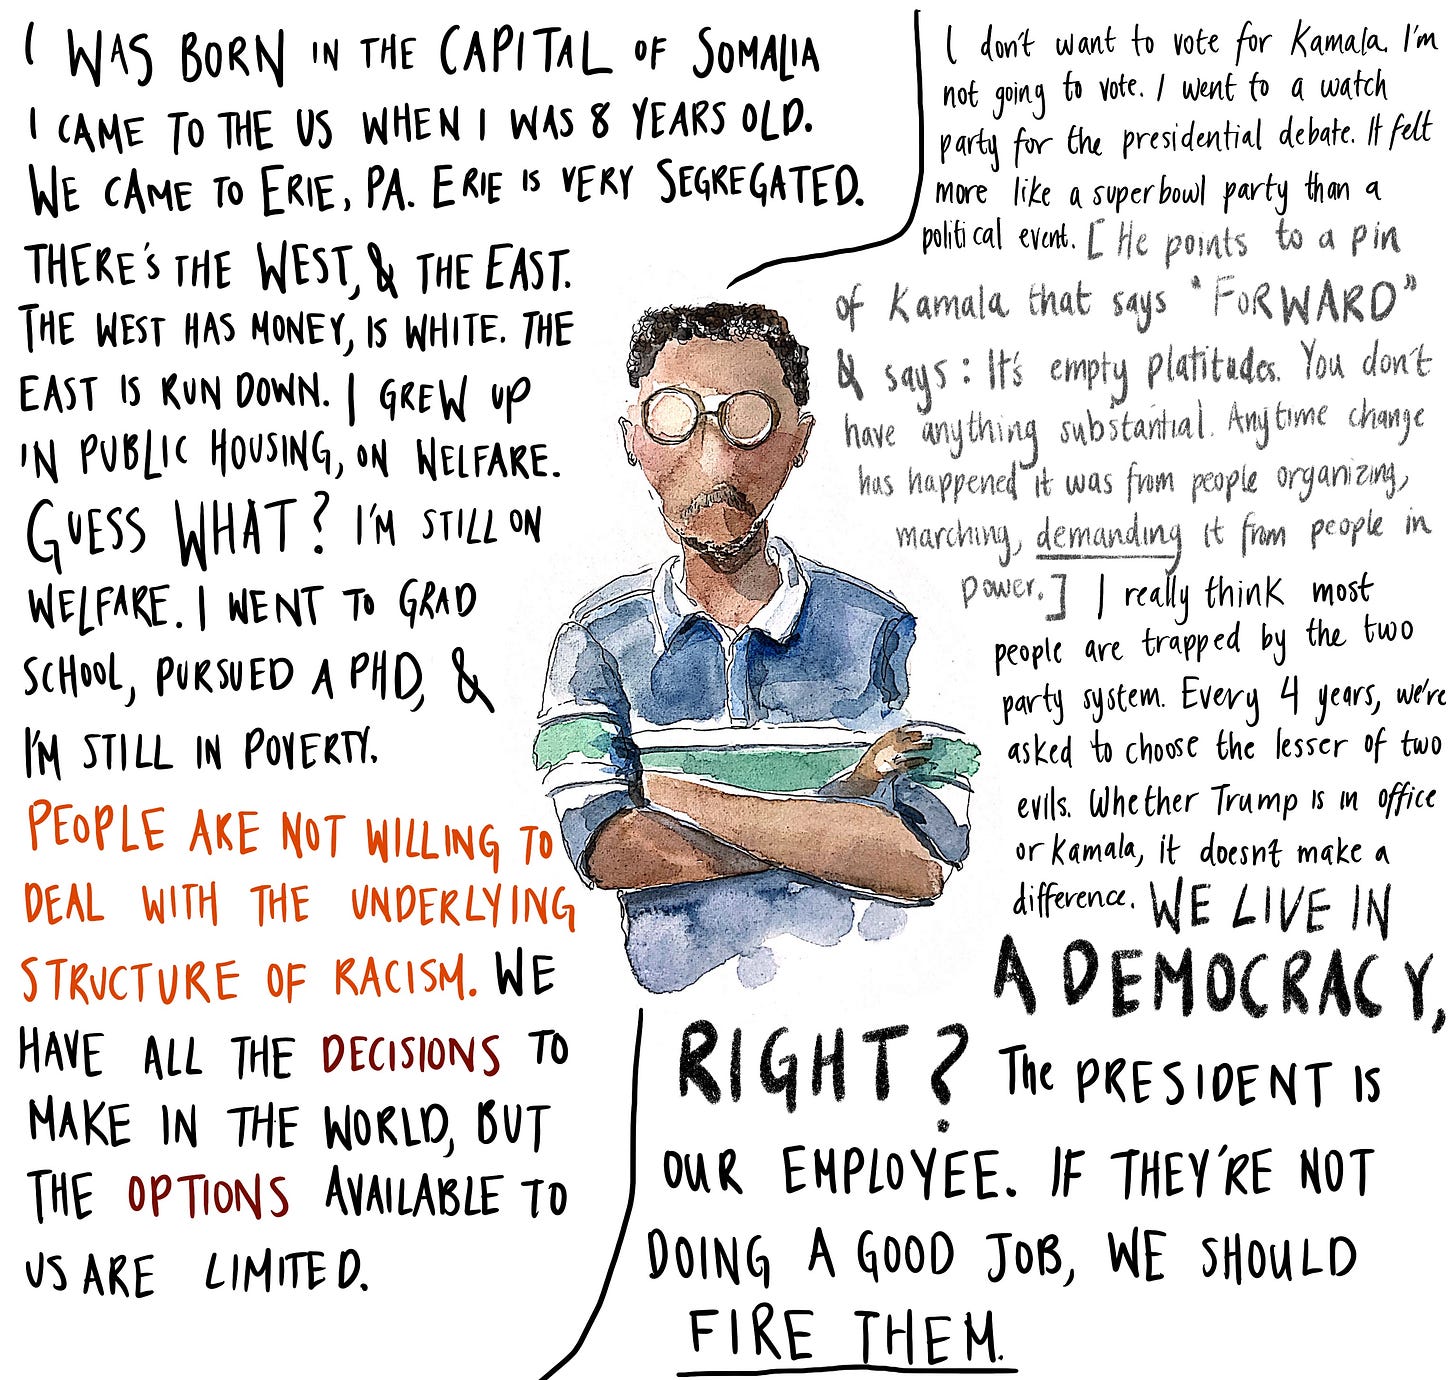 I WAS BORN IN THE CAPITAL OF SOMALIA
I CAME TO THE US WHEN I WAS 8 YEARS OLD.
WE CAME TO ERIE, PA. ERIE IS VERY SEGREGATED.
THERE'S THE WEST, & THE EAST.
THE WEST HAS MONEY, IS WHITE. THE
EAST IS RUN DOWN. I GREW UP
IN PUBLIC HOUSING, ON WELFARE.
GUESS WHAT? I'M STILL ON
WELFARE. I WENT TO GRAD
SCHOOL, PURSUED A PHD, &
I'M STILL IN POVERTY.
PEOPLE ARE NOT WILLING TO
DEAL WITH THE UNDERLYING
STRUCTURE OF RACISM. WE
HAVE ALL THE DECISIONS TO
MAKE IN THE WORLD, BUT
THE OPTIONS AVAILABLE TO
US ARE LIMITED.
I don't want to vote for Kamala. I'm
not going to vote. I went to a watch
party for the presidential debate. It felt
more like a superbowl party than a
political event. [He points to a pin
of Kamala that says "FORWARD"
& says: It's empty platitudes. You don't
have anything substantial. Anytime change
has happened it was from people organizing,
marching, demanding it from people in
power.] I really think most
people are trapped by the two
party system. Every 4 years, we're
asked to choose the lesser of two
evils. Whether Trump is in office
or Kamala, it doesn't make a
difference. WE LIVE IN
A DEMOCRACY,
RIGHT? The PRESIDENT IS
OUR EMPLOYEE. IF THEY'RE NOT
DOING A GOOD JOB, WE SHOULD
FIRE THEM.